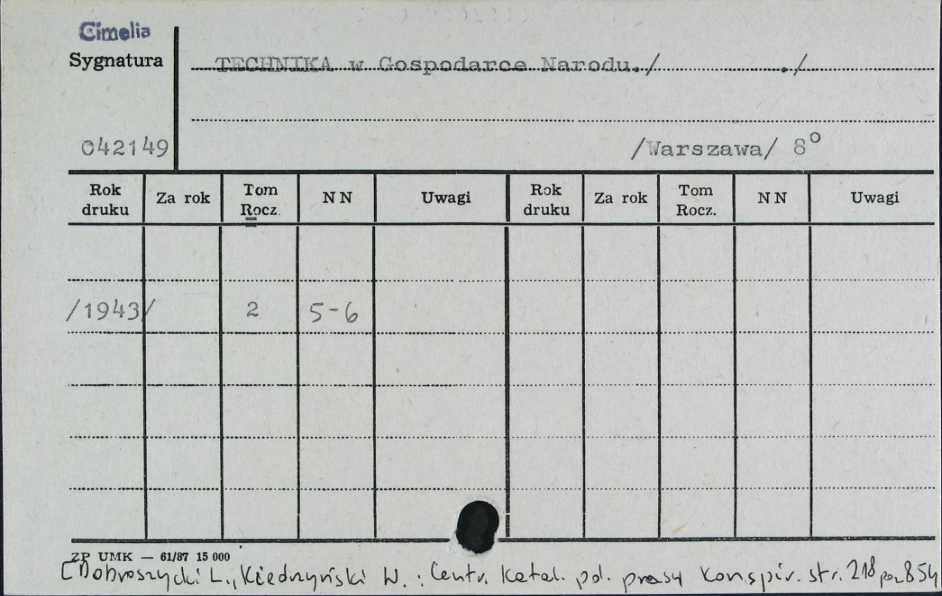 Cimelia
Sygnatura
TECHNIKA w Gospodarce Narodu./ ./
042149
/Warszawa/ 8°
Rok druku Za rok Tom Rocz. NN Uwagi Rok druku Za rok Tom Rocz. NN Uwagi
/1943/ 2 5-6
ZP UMK — 61/87 15 000
[Dobroszycki L., Kiedrzyński W. : Centr. Katal. pol. prasy Konspir. str. 218 poz 854